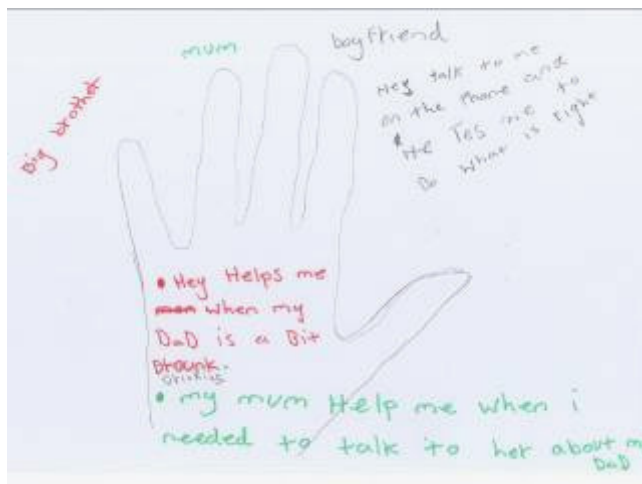 mum
boyfriend
Big brother
Hey talk to me
on the Phone and
He Tes me to
Do what is right
• Hey Helps me
when my
DaD is a Bit
Drounk.
Drinking
• my mum Help me when i
needed to talk to her about m
DaD